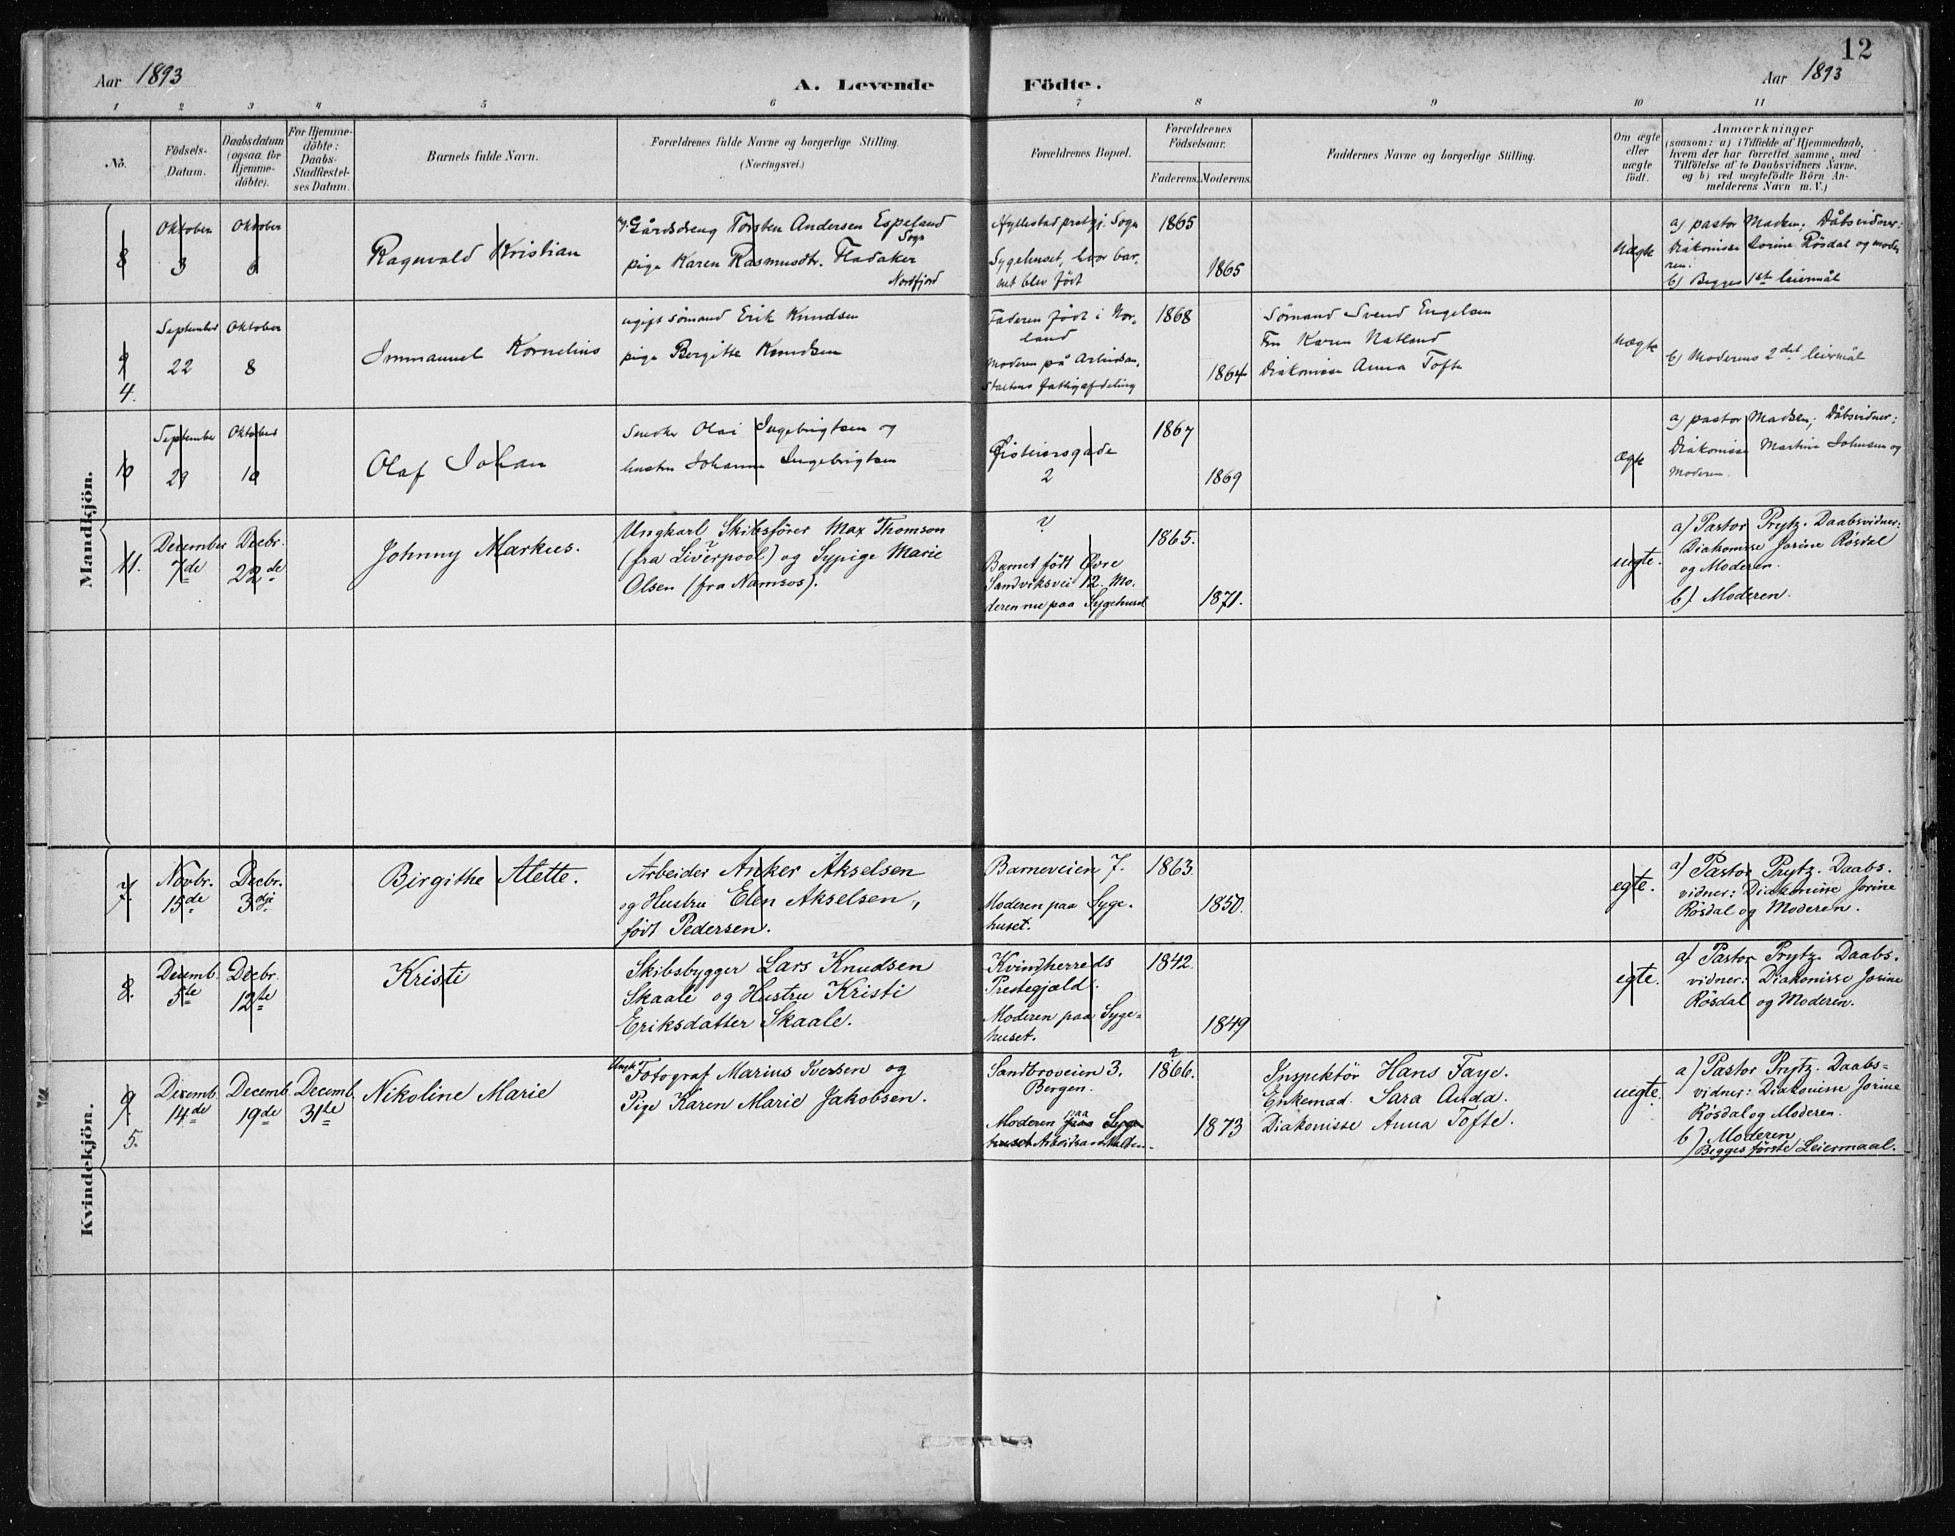 12
Aar 1893
A. Levende
Födte.
Aar 1893
1 2 3 4 5 6 7 8 9 10 11
No.
Födsels-
Datum.
Daabsdatum
(ogsaa for
Hjemme-
döbte).
For Hjemme-
döbte:
Daabs-
Stadfæstel-
ses Datum.
Barnets fulde Navn.
Forældrenes fulde Navne og borgerlige Stilling.
(Næringsvei.)
Forældrenes Bopæl.
Forældrenes
Födselsaar.
Faderens. Moderens.
Faddernes Navne og borgerlige Stilling.
Om ægte
eller
uægte
födt.
Anmærkninger
(saasom: a) i Tilfælde af Hjemmedaab,
hvem der har forrettet samme, med
Tilföielse af to Daabsvidners Navne,
og b) ved uægtefödte Börn An-
melderens Navn m. V.)
Mandkjön.
8
Oktober
3
Oktober
6
Ragnvald Kristian
Gårdsdreng Torsten Andersen Espeland
Sogn
pige Karen Rasmusdtr. Fladaker
Nordfjord
Hyllestad prstgj. Sogn
Sygehuset, hvor bar-
net blev födt
1865
1865
uægte
a) pastor Madsen; Dåbsvidner:
Diakonisse Jorine Røsdal og mode-
ren.
b) Begges 1st leiermål
9
4.
September
22
Oktober
8
Immanuel Kornelius
ugift sömand Erik Knudsen
pige Bergitte Knudsen
Faderen födt i Nor-
land
Moderen på Arbeidsan-
staltens fattigafdeling
1868
1864
Sömand Svend Engelsen
Fru Karen Natland
Diakonisse Anna Tofte
uægte
b) Moderens 2det leiermål
10
September
29
Oktober
10
Olaf Johan
Snedker Olai Ingebrigtsen og
hustru Johanne Ingebrigtsen
Øisteinsgade
2
1867
1869
Ægte
a) pastor Madsen; Dåbsvidner:
Diakonisse Martine Johnsen og
Moderen.
11.
December
7de
Decbr.
22de
Johnny Markus.
Ungkarl Skibsfører Max Thomson
(fra Liverpool?) og Sypige Marie
Olsen (fra Namsos).
?
Barnet födt Øvre
Sandviksvei 12. Mo-
deren nu paa Sygehuset
1865.
1871.
uegte.
a) Pastor Prytz. Daabsvidner:
Diakonisse Jorine Røsdal
og Moderen.
b) Moderen.
Kvindekjön.
7.
Novbr.
15de
Decbr.
3dje
Birgithe Alette.
Arbeider Anker Akselsen
og Hustru Elen Akselsen,
født Pedersen.
Barneveien 7.
Moderen paa Syge-
huset.
1863.
1850.
egte.
a) Pastor Prytz. Daabs-
vidner: Diakonisse Jorine
Røsdal og Moderen.
8.
Decemb.
5te
Decbr.
12te
Kristi
Skibsbygger Lars Knudsen
Skaale og Hustru Kristi
Eriksdatter Skaale.
Kvindherreds
Prestegjæld.
Moderen paa Syge-
huset.
1842.
1849
egte.
a) Pastor Prytz. Daabs-
vidner: Diakonisse Jorine
Røsdal og Moderen.
9
5.
Decemb.
14de
Decemb.
19de
Decemb.
31te
Nikoline Marie
Ungk. Fotograf Marius Iversen og
Pige Karen Marie Jakobsen.
Sandbroveien 3.
Bergen.
Moderen paa Syge-
huset Arbeidsanstalten.
1866.?
1873
Inspektör Hans Faye.
Enkemad. Sara Anda.
Diakonisse Anna Tofte.
uegte.
a) Pastor Prytz. Daabs-
vidner: Diakonisse Jorine
Røsdal og Moderen.
b) Moderen
Begges første Leiermaal.